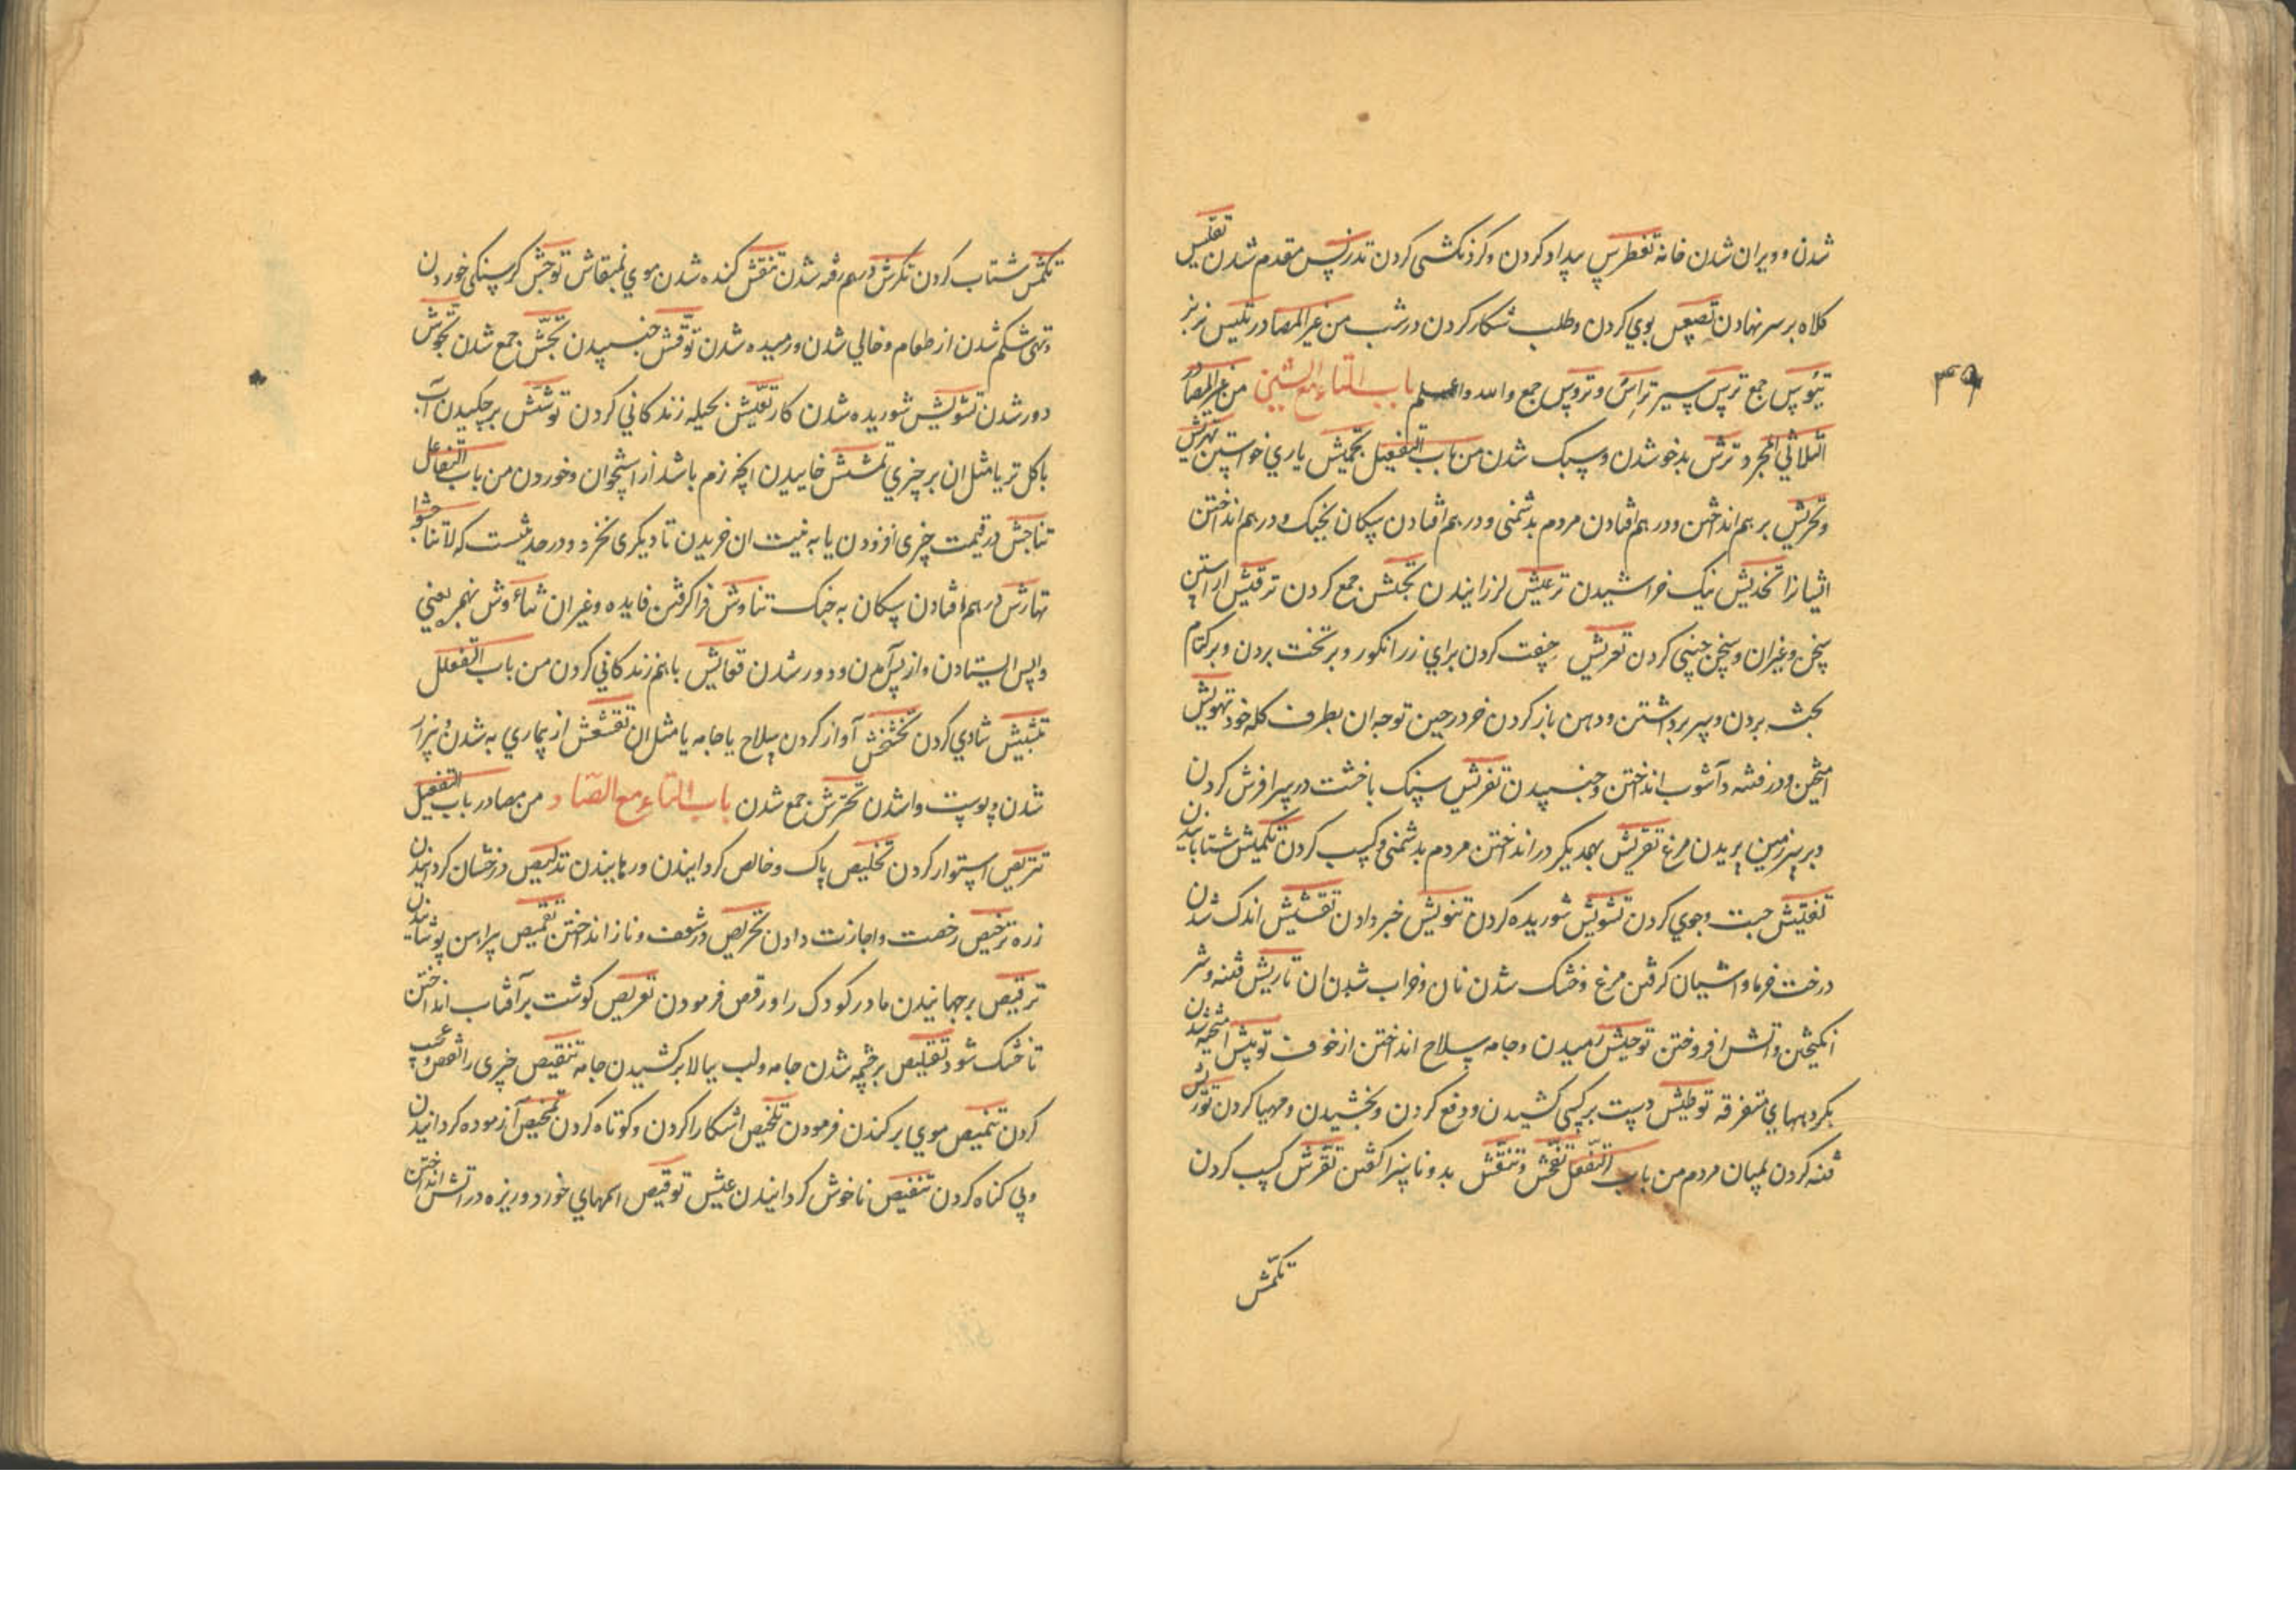 شدن و ویران شدن خانه تغطرس بیداد کردن و کردنکشی کردن تدرپس مقدم شدن تقلیس
کلاه بر سر نهادن بوی کردن و طلب شکار کردن در شب من غیر المصادر تکیس نر بز
تیوس جمع ترس سپر تراس و تروس جمع والله واعلم باب التاء مع الشین من غیر المصادر
الثلاثی المجرد ترش بدخو شدن و سبک شدن من باب التفعیل تجمیش یاری خواستن تهریش
و تحریش بر هم انداختن و در هم افتادن مردم بدشمنی و در هم افتادن سکان بجنک و در هم انداختن
ایشانرا تخدیش نیک خراشیدن ترعیش لرزانیدن تجلش جمع کردن ترقیش اراستن
سخن و غیر ان و سخن چینی کردن تعریش چفت کردن برای زر انکور و بر تخت بردن و بر کتام
بجث بردن و سر برداشتن و دهن باز کردن خر در حین توجه ان بطرف کله خود تهویش
امیختن و در فتنه و آشوب انداختن و جنبیدن تفرش سنک یا خشت در سرا فرش کردن
و بر سر زمین پریدن مرغ تقریش بهمدیکر در انداختن مردم بدشمنی و کسب کردن تکمیش شتابانیدن
تفتیش جست و جوی کردن تشویش شوریده کردن تنویش خبر دادن تقشیش اندک شدن
درخت خرما و اشیان کرفتن مرغ و خشک شدن نان و خراب شدن ان تاریش فتنه و شر
انکیختن و اتش افروختن توحیش رمیدن و جامه سلاح انداختن از خوف توپش امیخته شدن
بکروههای متفرقه توطیش دست بر کسی کشیدن و دفع کردن و بخشیدن و مهیا کردن تورش
فتنه کردن بمیان مردم من باب التفعل تفحش و تنقش بد و ناسزا کفتن تقرش کسب کردن
تکمش
۳۹
تکمش شتاب کردن تکرش درهم رفته شدن تنقش کنده شدن موی بمنقاش توحش کرسنکی خوردن
و تهی شکم شدن از طعام و خالی شدن و رمیده شدن توقش جنبیدن تجش جمع شدن تجوش
دور شدن تشویش شوریده شدن کار تعیش بحیله زندکانی کردن توشش بر چکیدن آب
با کل تر یا مثل ان بر چیزی تمشش خاییدن انچه نرم باشد از استخوان و خوردن من باب التفاعل
تناجش در قیمت چیزی افزودن یا به نیت ان خریدن تا دیکری نخرد و در حدیثست که لاتناجشوا
تهارش در هم افتادن سکان به جنک تناوش فرا کرفتن فایده و غیر ان تناءوش بهمز یعنی
واپس ایستادن و از پس آمدن و دور شدن تعایش با هم زندکانی کردن من باب التفعلل
تبشبش شادی کردن تخشخش آواز کردن سلاح یا جامه یا مثل ان تقشقش از بیماری به شدن و بیزار
شدن و پوست واشدن تحترش جمع شدن باب التاء مع الصاد من مصادر باب التفعیل
تتریص استوار کردن تخلیص پاک و خالص کردانیدن و رهانیدن تدلیص درخشان کردانیدن
زره ترخیص رخصت و اجازت دادن تحریص در شعف و ناز انداختن تقمیص پیراهن پوشانیدن
ترقیص بر جهانیدن مادر کودک را و رقص فرمودن تعریص کوشت بر آفتاب انداختن
تا خشک شود تقلیص برجمه شدن جامه و لب ببالا بر کشیدن جامه تنقیص چیزی را نقص و عیب
کردن تنمیص موی بر کندن فرمودن تلخیص اشکارا کردن و کوتاه کردن تمحیص آزموده کردانیدن
و بی کناه کردن تنغیص ناخوش کردانیدن عیش توقیص هیمهای خورد و ریزه در اتش انداختن